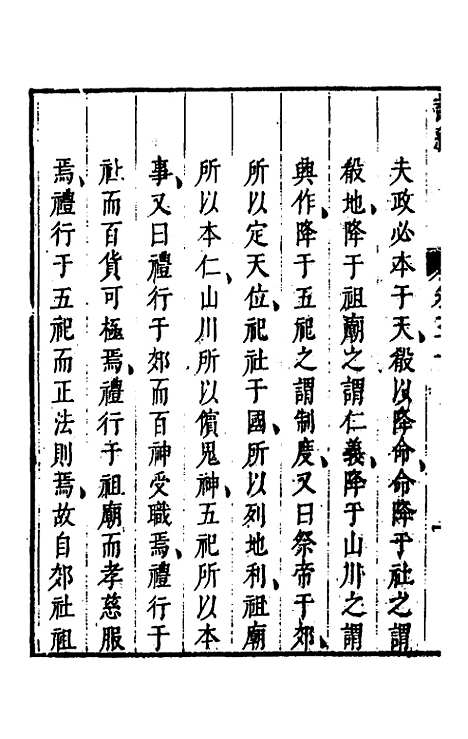 夫政必本于天殽以降命命降于社之謂
殽地降于祖廟之謂仁義降于山川之謂
興作降于五祀之謂制度又曰祭帝于郊
所以定天位祀社于國所以列地利祖廟
所以本仁山川所以儐鬼神五祀所以本
事又曰禮行于郊而百神受職焉禮行于
社而百貨可極焉禮行于祖廟而孝慈服
焉禮行于五祀而正法則焉故自郊社祖